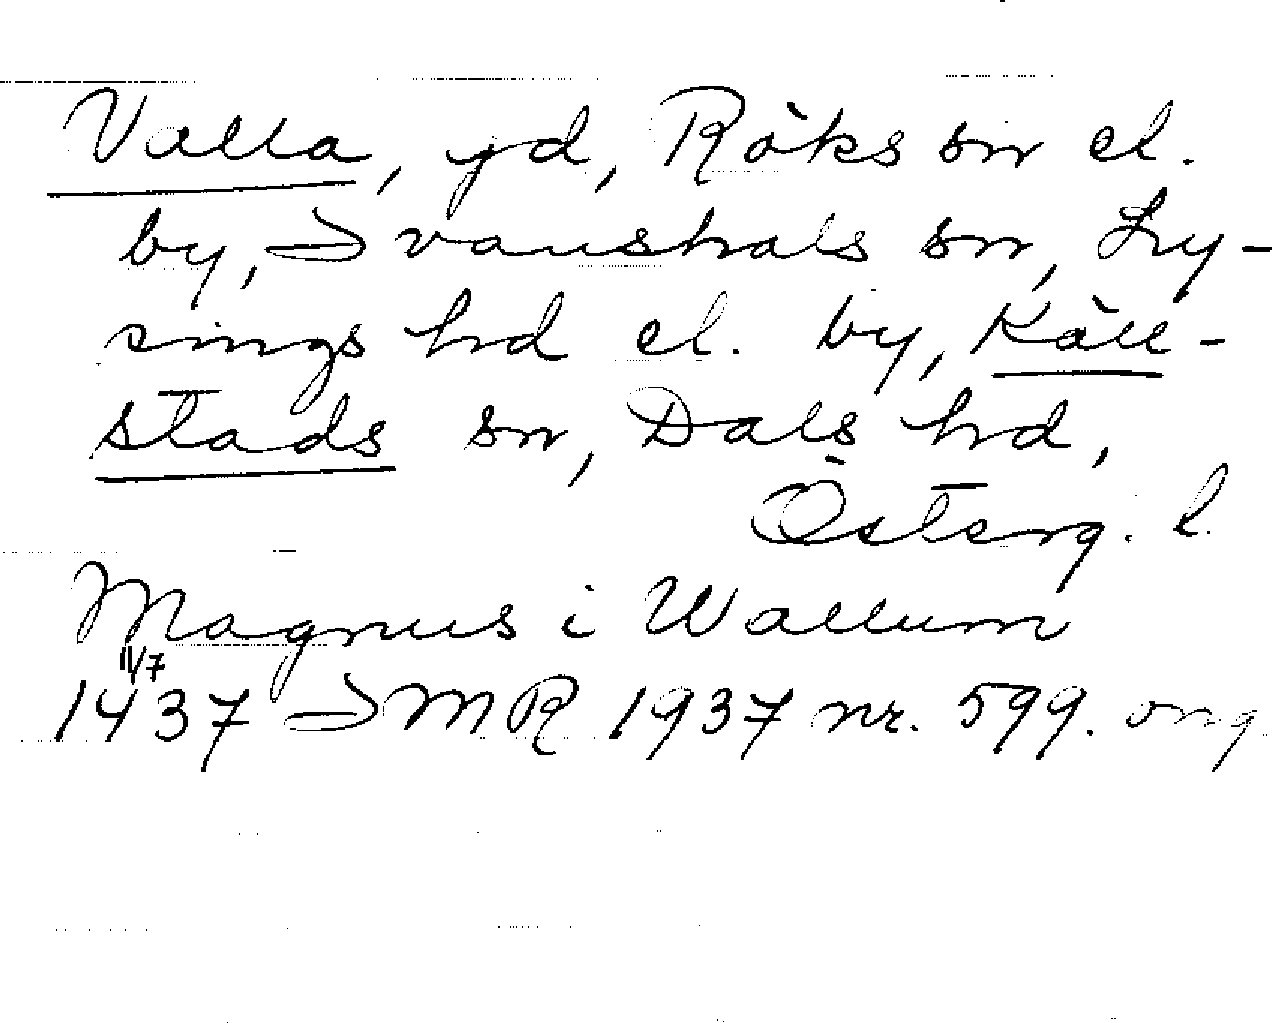 Valla, gd, Röks sn el.
by, Svanshals sn, Ly-
sings hd el. by, Käll-
stads sn, Dals hd,
Österg. l.
Magnus i Wallum
11/7
1437 SMR 1937 nr. 599. org.